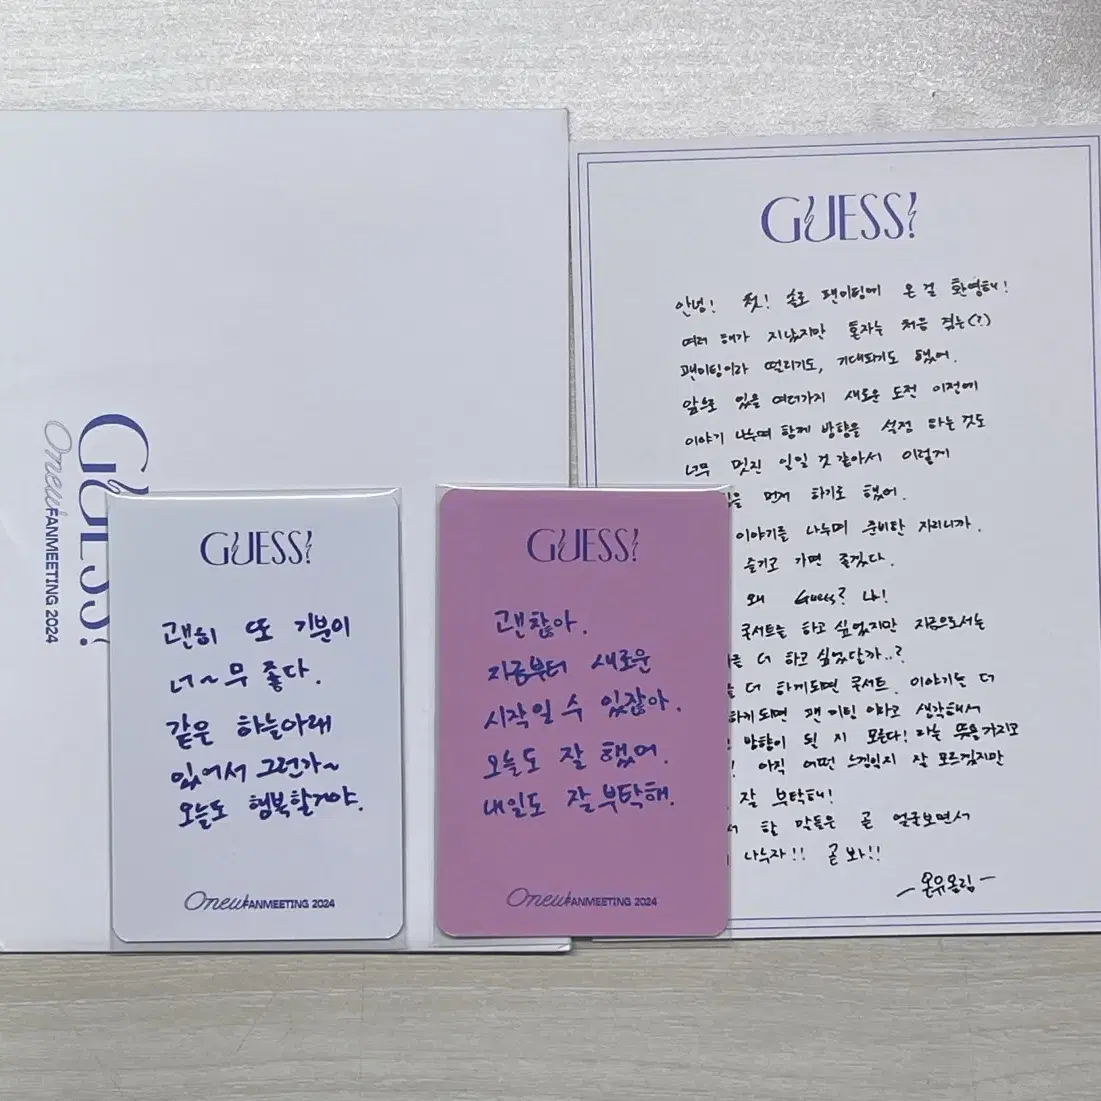 GUESS!
Onew FANMEETING 2024
GUESS!
괜히 또 기분이
너~무 좋다.
같은 하늘아래
있어서 그런가~
오늘도 행복할거야.
Onew FANMEETING 2024
GUESS!
괜찮아.
지금부터 새로운
시작일 수 있잖아.
오늘도 잘 했어.
내일도 잘 부탁해.
Onew FANMEETING 2024
GUESS!
안녕! 첫! 솔로 팬미팅에 온 걸 환영해!
여러 해가 지났지만 혼자는 처음 겪는(?)
팬미팅이라 떨리기도, 기대되기도 했어.
앞으로 있을 여러가지 새로운 도전 이전에
이야기 나누며 함께 방향을 설정 하는 것도
너무 멋진 일일 것 같아서 이렇게
먼저 하기로 했어.
이야기를 나누며 준비한 자리니까.
즐기고 가면 좋겠다.
왜 Guess? 나!
콘서트를 하고 싶었지만 지금으로서는
더 하고 싶었달까..?
더 하게되면 콘서트. 이야기를 더
하게되면 팬미팅 이라고 생각해서
방향이 될 지 모른다! 라는 뜻을 가지고
! 아직 어떤 느낌일지 잘 모르겠지만
잘 부탁해!
할 말들은 곧 얼굴보면서
나누자!! 곧 봐!!
-온유올림-